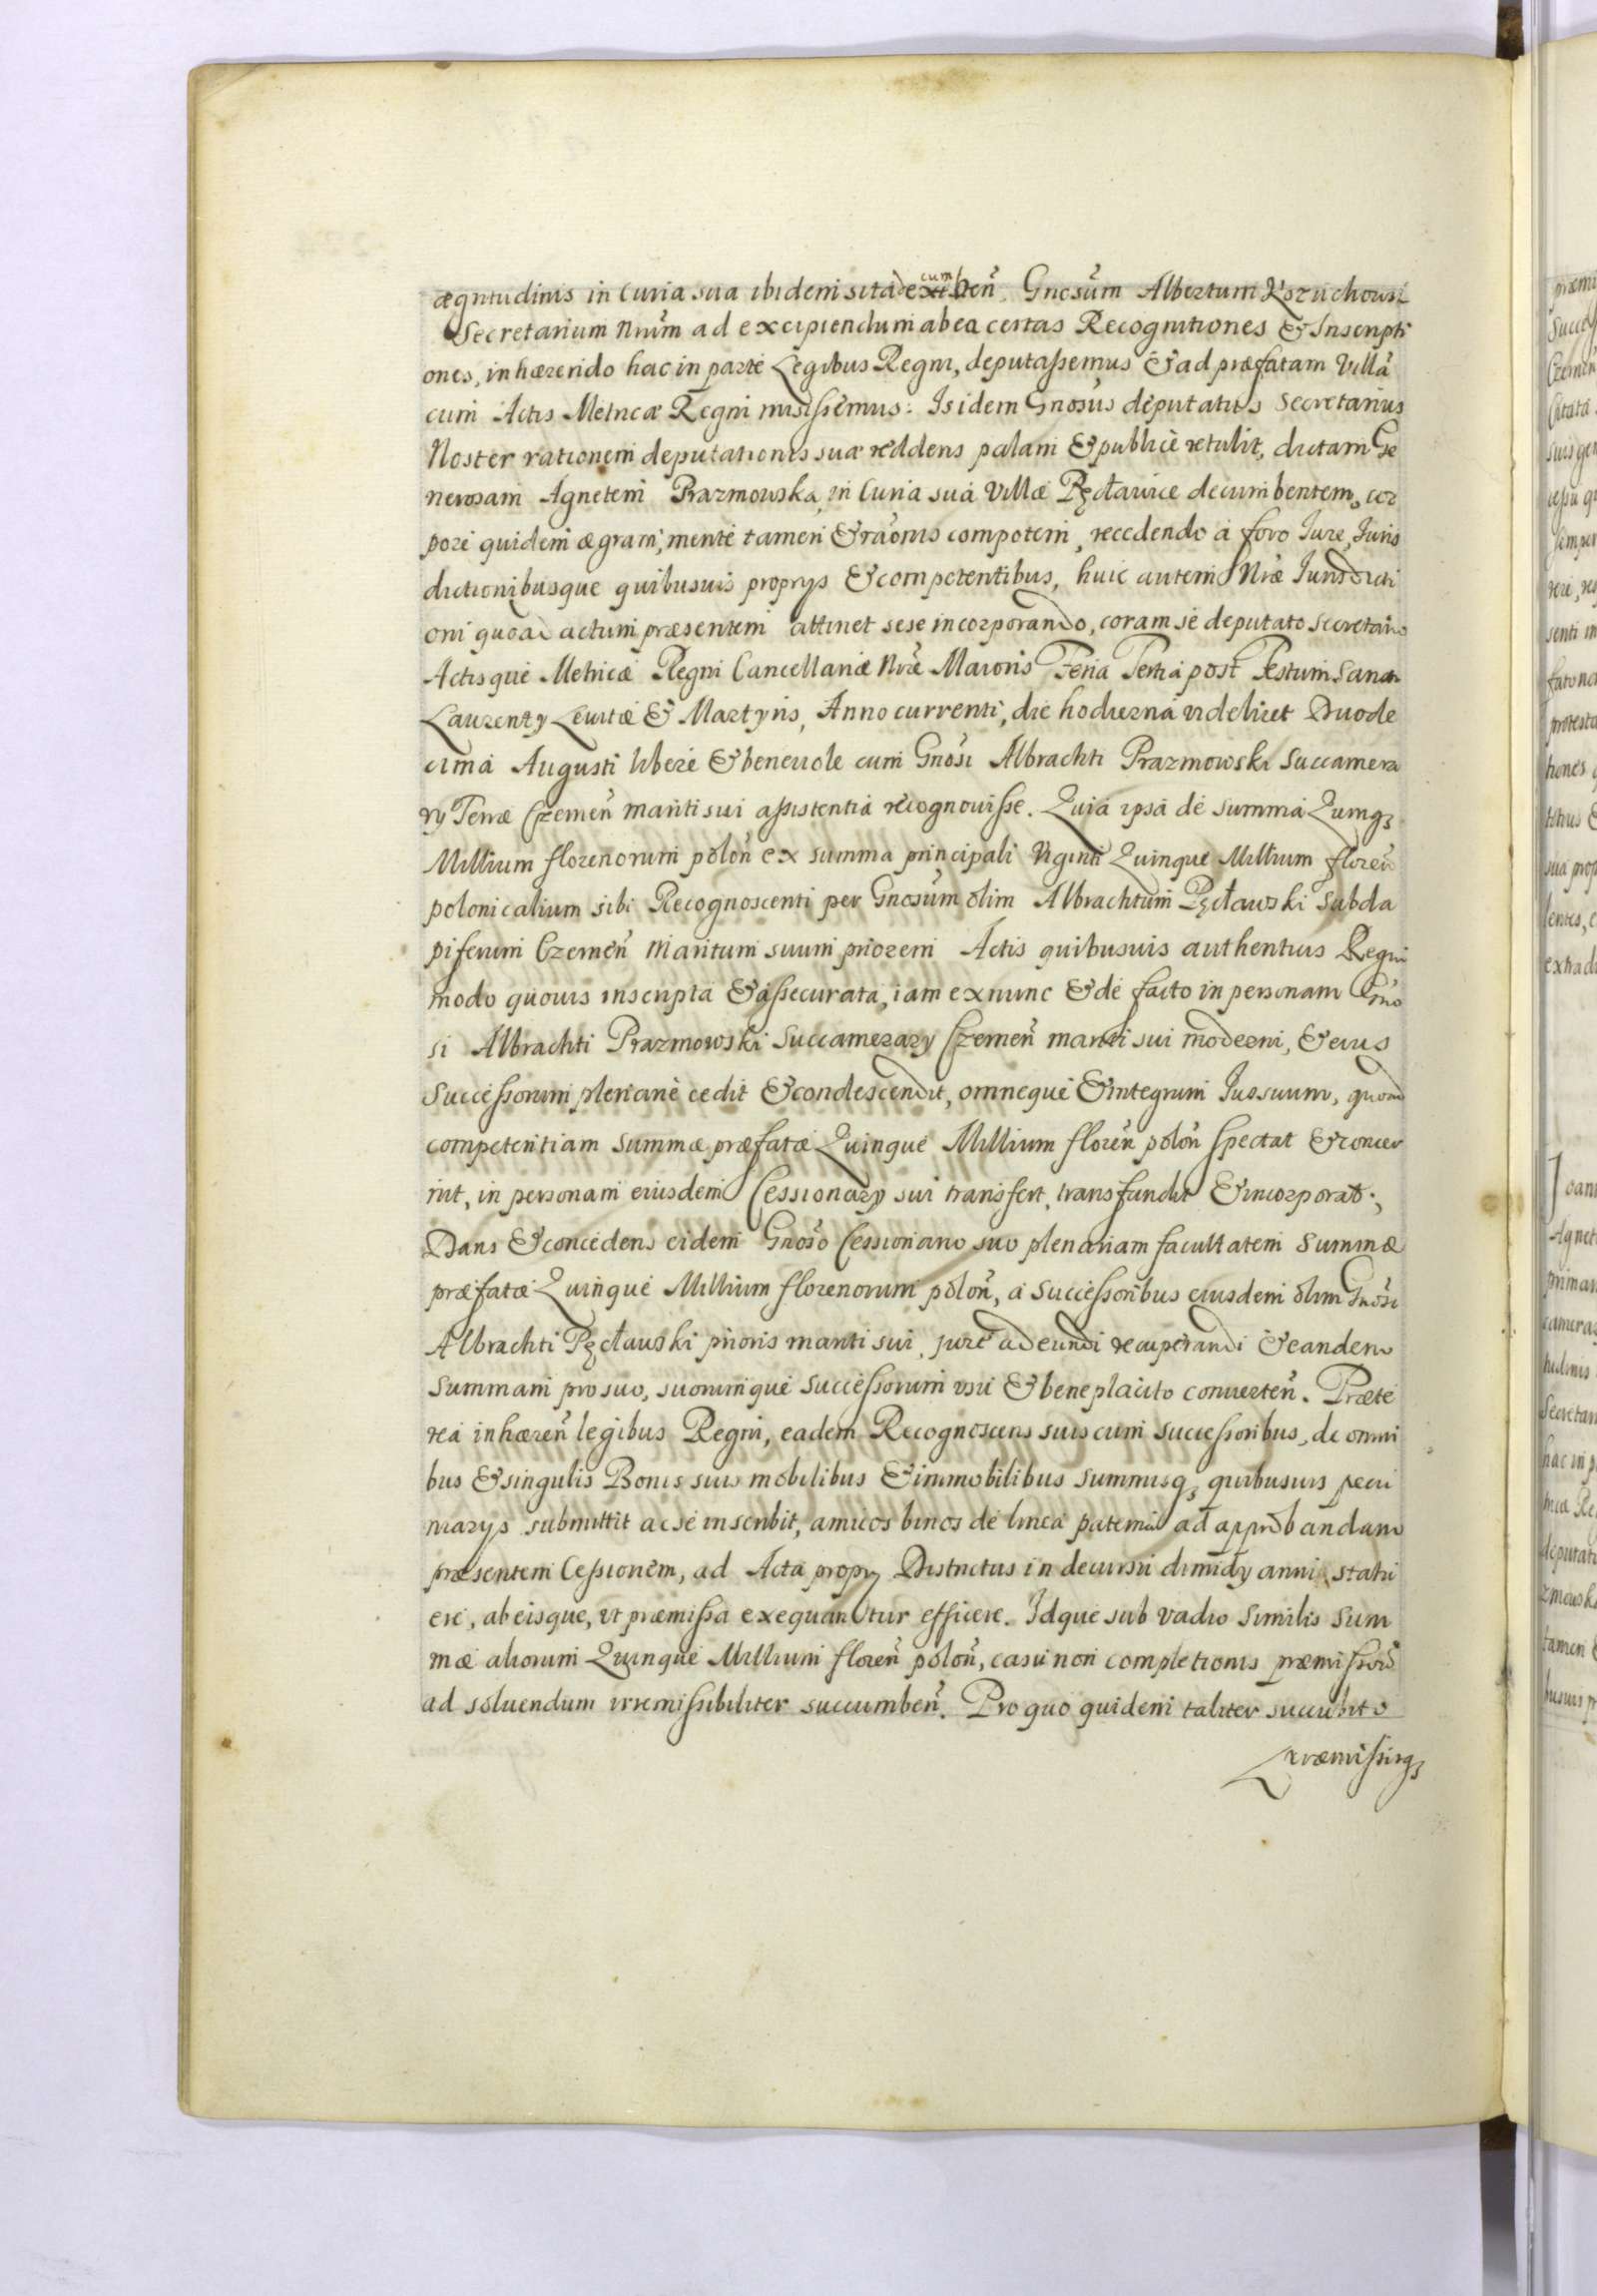 ægritudinis in Curia sua ibidem sita decumbeñ. Gnosũm Albertum Kozuchowski
Secretarium Nrũm ad excipiendum ab ea certas Recognitiones & Inscripti
ones, inhærendo hac in parte Legibus Regni, deputassemus & ad præfatam Villã
cum Actis Metricæ Regni misissemus: Is idem Gnosus deputatus Secretarius
Noster rationem deputationis suæ reddens palam & publice retulit, dictam Ge
nerosam Agnetem Prazmowska, in Curia sua Villæ Pęcławice decumbentem, cor
pore quidem ægram, mente tamen & rãonis compotem, recedendo a foro Jure, Juris
dictionibusque quibusuis proprys & competentibus, huic autem Nræ Jurisdicti
oni quoad actum præsentem attinet sese incorporando, coram se deputato Secretario
Actisque Metricæ Regni Cancellariæ Nræ Maioris Feria Tertia post Festum Sancti
Laurenty Leuitæ & Martyris, Anno currenti, die hodierna videlicet Duode
cima Augusti libere & beneuole cum Gnosi Albrachti Prazmowski Succamera
ry Terræ Czerneñ mariti sui assistentia recognouisse. Quia ipsa de summa Quinqȝ
Millium florenorum poloñ ex summa principali Viginti Quinque Millium floreñ
polonicalium sibi Recognoscenti per Gnosũm olim Albrachtum Pęcławski Subda
piferum Czerneñ Maritum suum priorem Actis quibusuis authenticis Regni
modo quouis inscripta & assecurata, iam ex nunc & de facto in personam Gno
si Albrachti Prazmowski Succamerary Czerneñ mariti sui moderni, & eius
Successorum plenarie cedit & condescendit, omneque & integrum Jus suum, quod
competentiam summæ præfatæ Quinque Millium floreñ poloñ spectat & concer
nit, in personam eiusdem Cessionary sui transfert, transfundit & incorporat;
Dans & concedens eidem Gnoso Cessionario suo plenariam facultatem Summæ
præfatæ Quinque Millium florenorum poloñ, a Successoribus eiusdem olim Gnosi
Albrachti Pęcławski prioris mariti sui, jure adeundi recuperandi & eandem
summam pro suo, suorumque Successorum vsu & beneplacito conuerteñ. Præte
rea inhæreñ legibus Regni, eadem Recognoscens suis cum successoribus, de omni
bus & singulis Bonis suis mobilibus & immobilibus summisqȝ quibusuis pecu
niarys submittit ac se inscribit, amicos binos de linea paterna ad approbandam
præsentem Cessionem, ad Acta propry Districtus in decursu dimidy anni statu
ere, ab eisque, vt præmissa exequantur efficere. Idque sub vadio similis Sum
mæ aliorum Quinque Millium floreñ poloñ, casu non completionis præmissorũ
ad soluendum irremissibiliter succumbeñ. Pro quo quidem taliter succubito
præmissisqȝ